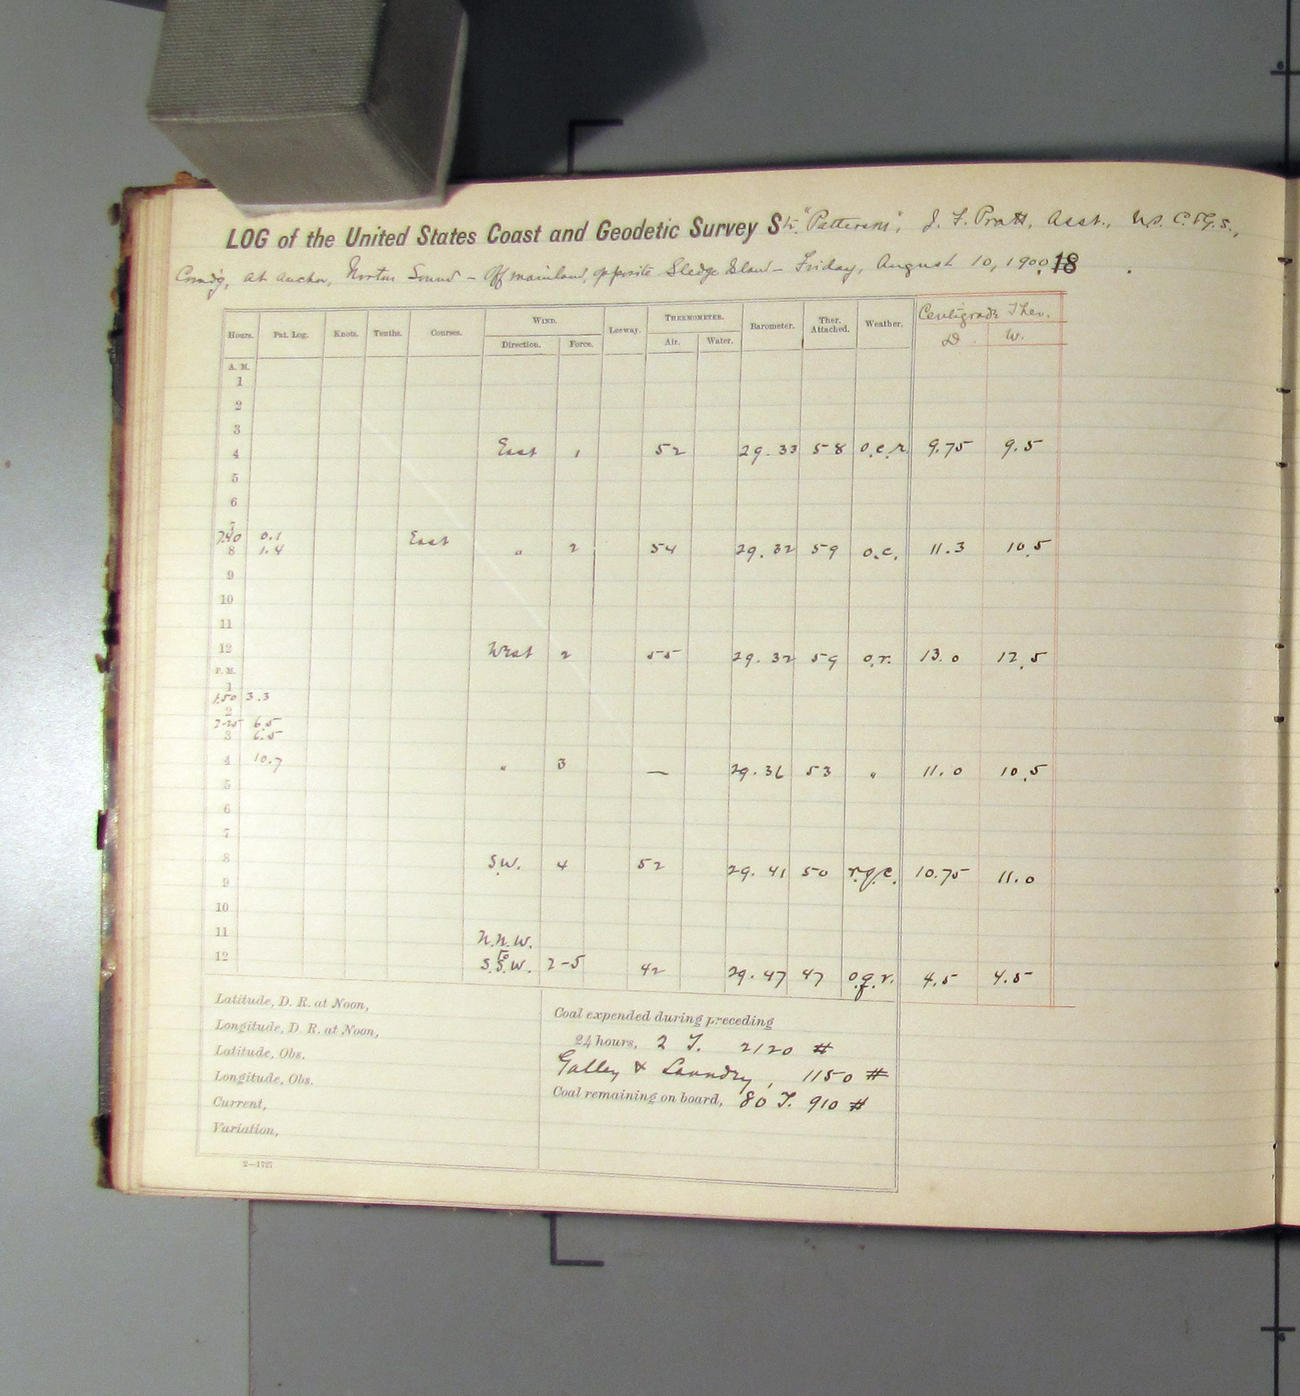 LOG of the United States Coast and Geodetic Survey Str. "Patterson", J. F. Pratt, Asst., U.S. C. & G.S.,
Comd'g, at anchor, Norton Sound - Off mainland, opposite Sledge Island - Friday, August 10, 1900. 18
Hours. Pat. Log. Knots. Tenths. Courses. WIND. Leeway. THERMOMETER. Barometer. Ther. Attached. Weather. Centigrade Ther.
Direction. Force. Air. Water. D. W.
A. M.
1
2
3
4 East 1 52 29.33 58 o.c.r. 9.75 9.5
5
6
7
7.40 0.1 East
8 1.4 " 2 54 29.32 59 o.c. 11.3 10.5
9
10
11
12 West 2 55 29.32 59 o.r. 13.0 12.5
P. M.
1
1.50 3.3
2
2.25 6.5
3 6.5
4 10.7 " 3 — 29.36 53 " 11.0 10.5
5
6
7
8 S.W. 4 52 29.41 50 r.q.c. 10.75 11.0
9
10
11 N.N.W.
to
12 S.S.W. 2-5 42 29.47 47 o.q.r. 4.5 4.5
Latitude, D. R. at Noon,
Longitude, D. R. at Noon,
Latitude, Obs.
Longitude, Obs.
Current,
Variation,
Coal expended during preceding
24 hours, 2 T. 2120 #
Galley & Laundry, 1150 #
Coal remaining on board, 80 T. 910 #
2—1727
6
6